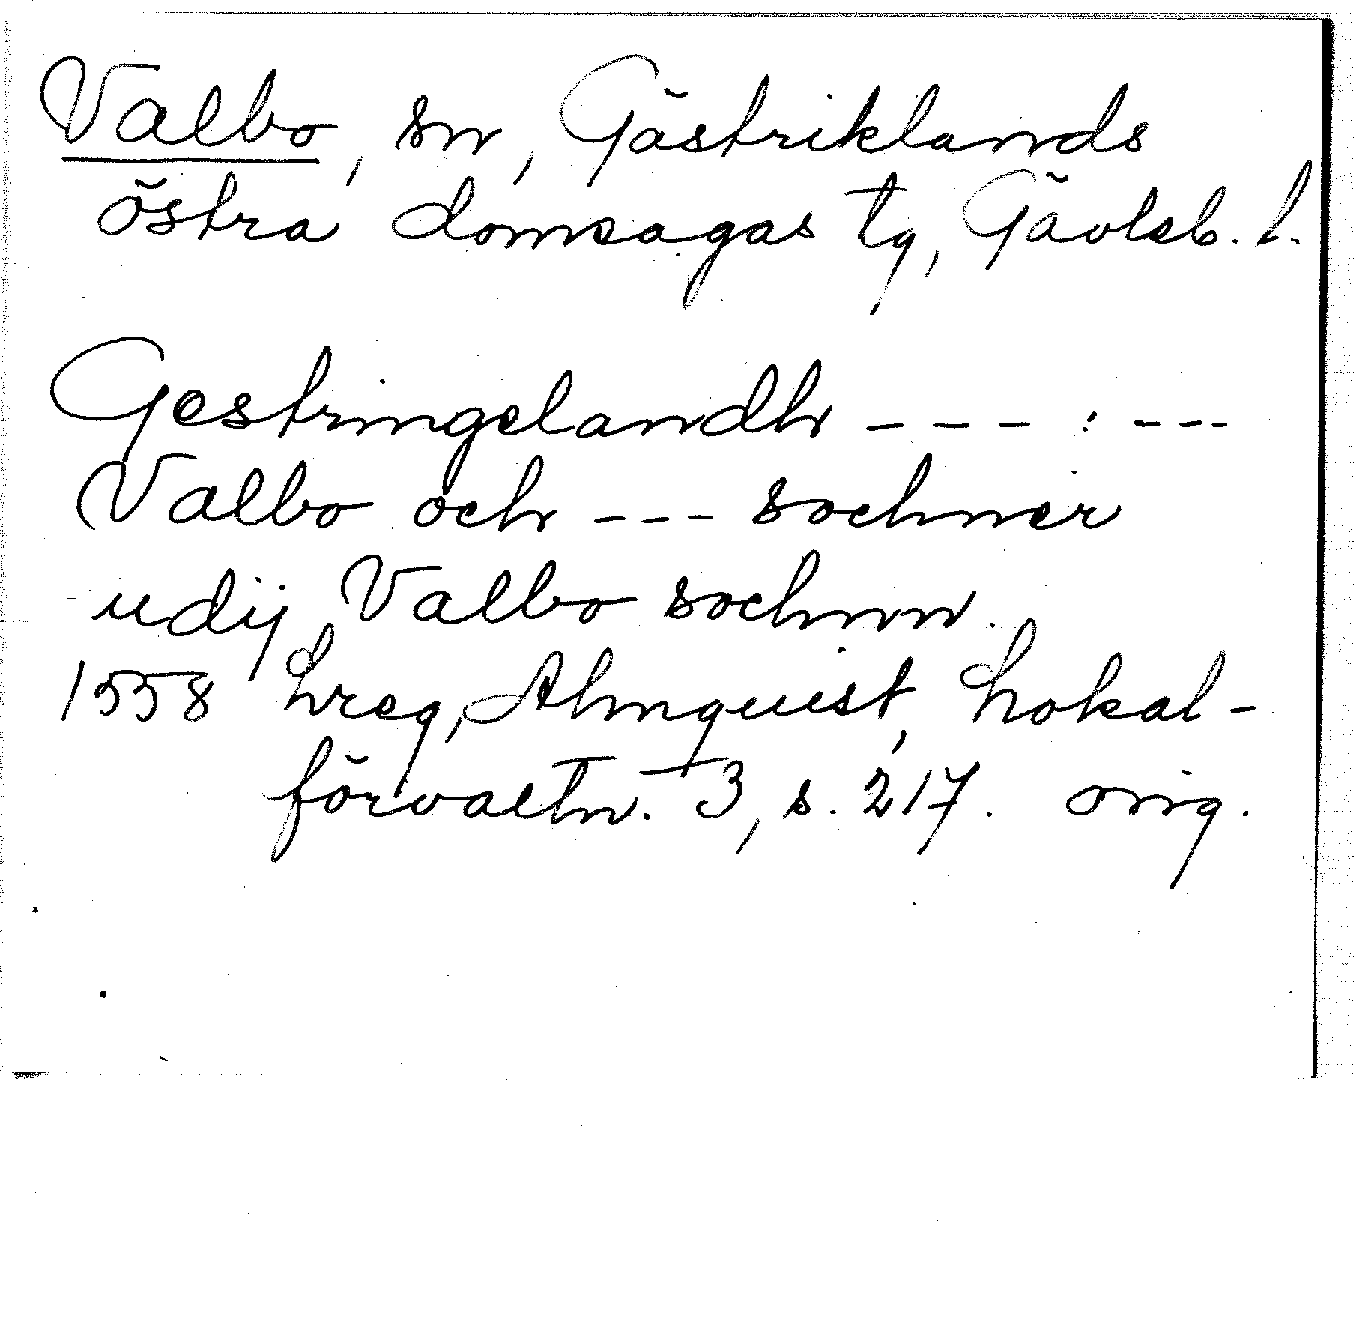 Valbo, sn, Gästriklands
östra domsagas tg, Gävleb. l.
Gestringelandh --- : ---
Valbo och --- sochner
udij Valbo sochnn.
1558 Lreg, Almquist, Lokal-
förvaltn. 3, s. 217. orig.